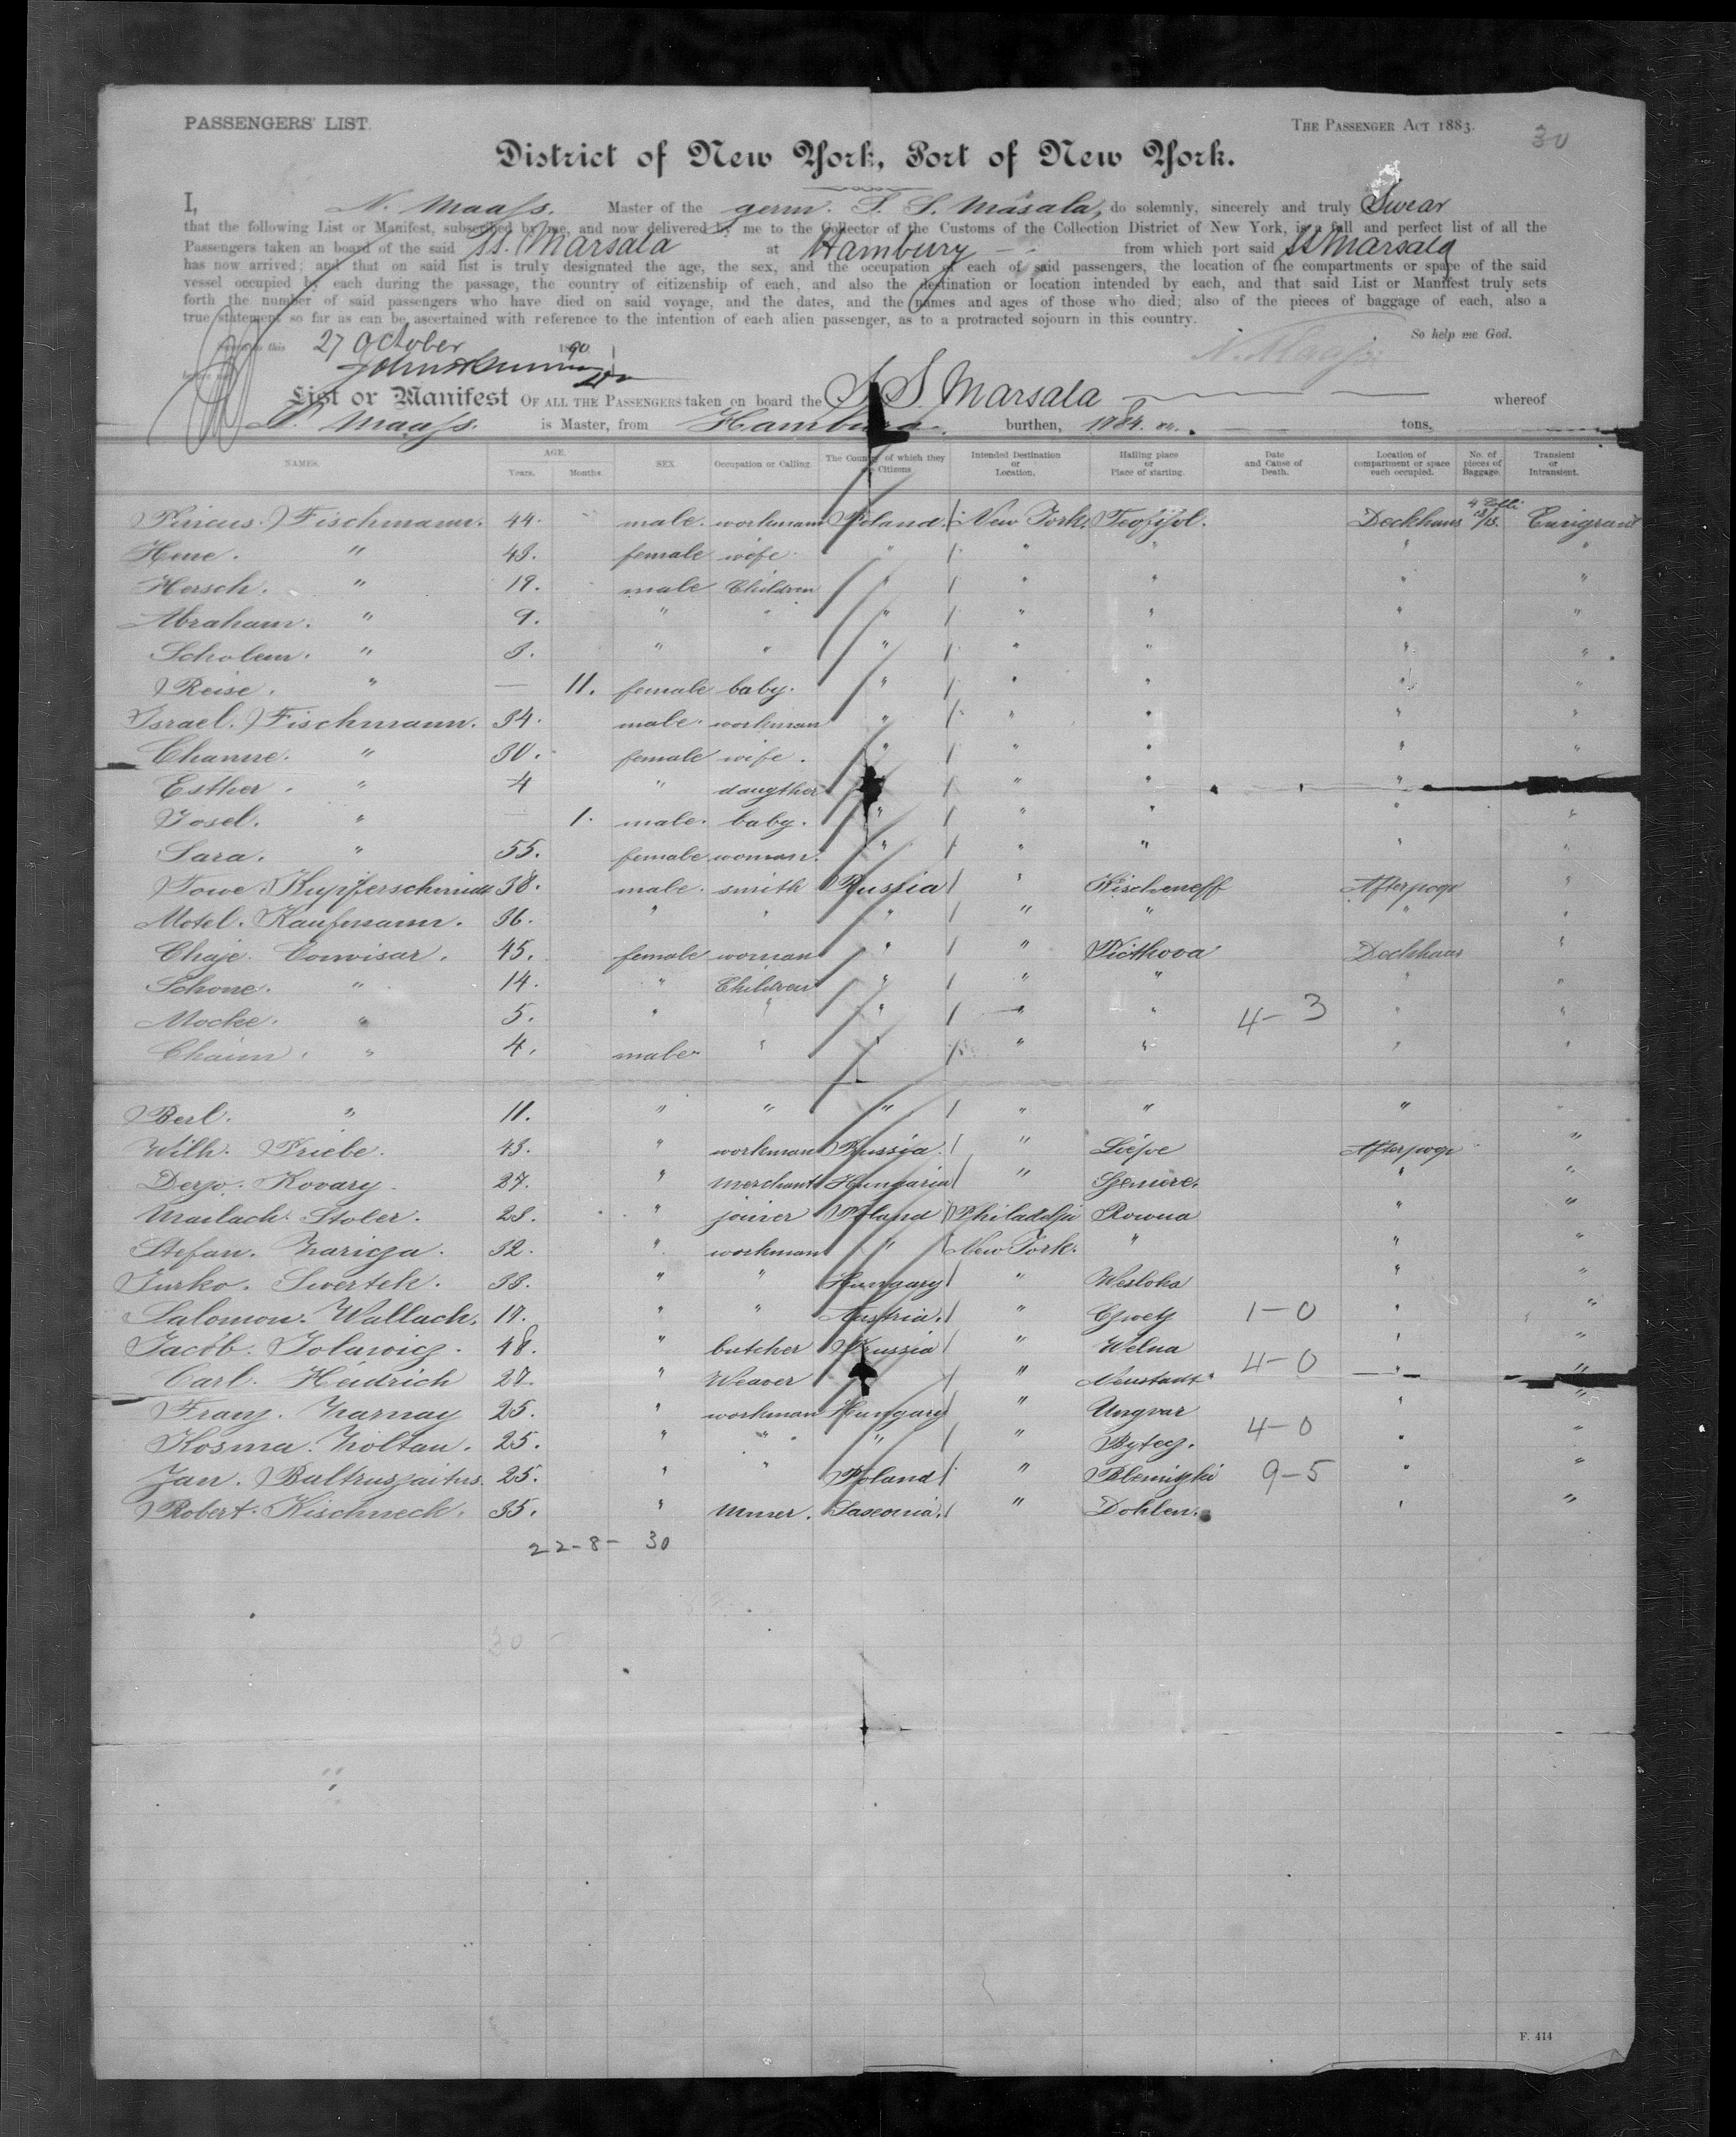 PASSENGERS' LIST.
THE PASSENGER ACT 1883.
30
District of New York, Port of New York.
I, N. Maass. Master of the germ. S. S. Marsala, do solemnly, sincerely and truly Swear
that the following List or Manifest, subscribed by me, and now delivered by me to the Collector of the Customs of the Collection District of New York, is a full and perfect list of all the
Passengers taken an board of the said SS. Marsala at Hamburg from which port said SS Marsala
has now arrived; and that on said list is truly designated the age, the sex, and the occupation of each of said passengers, the location of the compartments or space of the said
vessel occupied by each during the passage, the country of citizenship of each, and also the destination or location intended by each, and that said List or Manifest truly sets
forth the number of said passengers who have died on said voyage, and the dates, and the names and ages of those who died; also of the pieces of baggage of each, also a
true statement so far as can be ascertained with reference to the intention of each alien passenger, as to a protracted sojourn in this country.
So help me God.
this 27 October 1890
N. Maass
List or Manifest OF ALL THE PASSENGERS taken on board the S. S. Marsala whereof
N. Maass. is Master, from Hamburg. burthen, tons.
NAMES. AGE. Years. Months. SEX. Occupation or Calling. The Country of which they are Citizens. Intended Destination or Location. Hailing place or Place of starting. Date and Cause of Death. Location of compartment or space each occupied. No. of pieces of Baggage. Transient or Intransient.
Pincus. Fischmann. 44. male. workmann Poland. New York. Teofipol. Deckhaus 4 Colli Emigrant
Hene. " 43. female wife " " " " "
Hersch. " 19. male Children " " " " "
Abraham. " 9. " " " " " " "
Scholem. " 3. " " " " " " "
Reise. " — 11. female baby. " " " " "
Israel. Fischmann. 34. male. workman " " " " "
Channe. " 30. female wife. " " " " "
Esther. " 4 " daugther " " " "
Josel. " 1. male. baby. " " " " "
Sara. " 55. female woman. " " " " "
Towe Kupferschmidt 38. male. smith Russia " Kischeneff Afterpoop "
Motel. Kaufmann. 36. " " " " " " "
Chaje. Conwisar. 45. female woman " " Deckhaus "
Schone. " 14. " Children " " " " "
Mocke. " 5. " " " " " 4-3 " "
Chaim. " 4. male " " " " " "
Berl. " 11. " " " " " " "
Wilh. Priebe. 43. " workman Russia. " Liepe Afterpoop "
Kovary. 27. " merchant Hungaria " " "
Stoler. 23. " joiner Poland Philadelphi Rowna " "
Stefan. 32. " workman " New York. " " "
Jurko. Swertek. 33. " " Hungary " " "
Salomon. Wallach. 17. " " Austria. " 1-0 " "
Jacob. 18. " butcher Russia " Welna " "
Carl. Heidrich 27. " Weaver " Neustadt 4-0 " "
Franz. 25. " workman Hungary " Ungvar " "
Kosma. Zoltan. 25. " " " " 4-0 " "
Jan. Baltruszaitus. 25. " " Poland " 9-5 " "
Robert. Kischneck. 35. " Miner. Saxonia. " Dohlen. " "
22-8- 30
30
F. 414